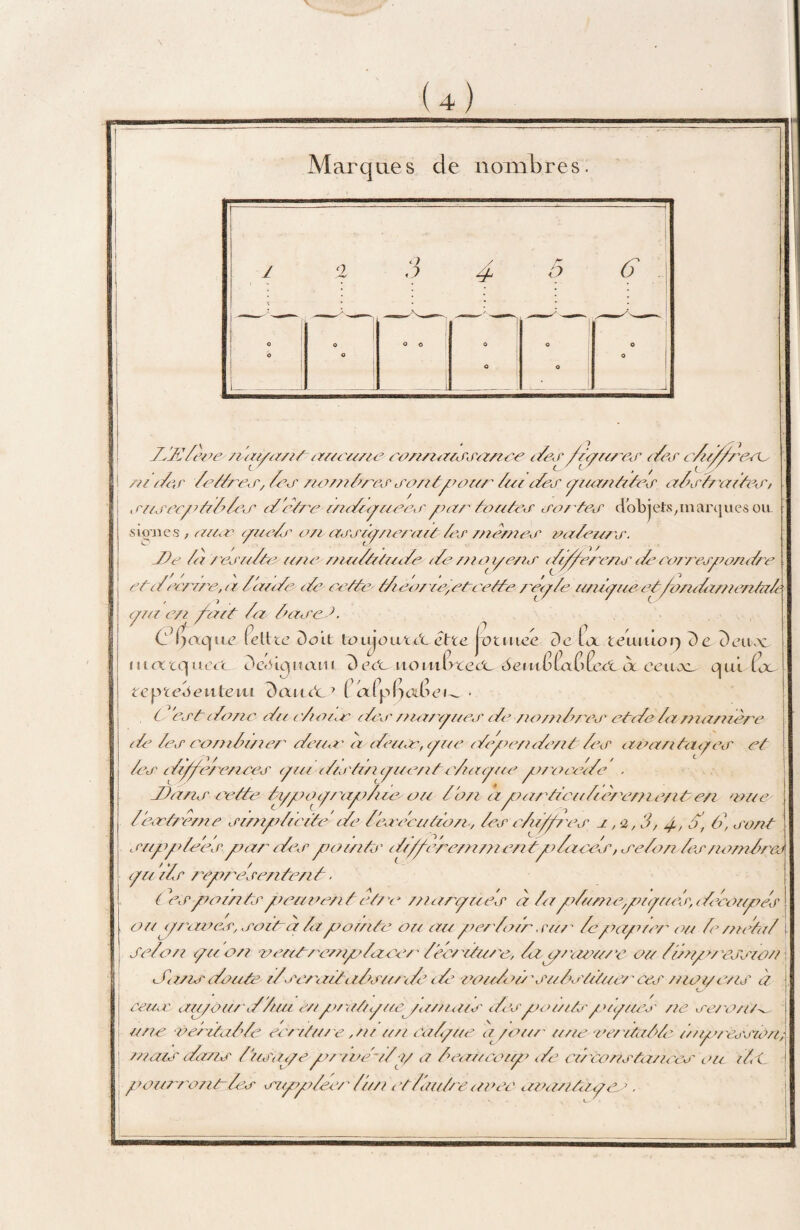 (4)
Marques de nombres.
1 2 3 4 5 6
L'Elève n'ayant aucune connaissance des figures des chiffres
ni des lettres, les nombres sont pour lui des quantités abstraites,
susceptibles d'être indiquées par toutes sortes d'objets, marques ou
signes, aux quels on assignerait les mêmes valeurs.
De là résulte une multitude de moyens différens de correspondre
et d'écrire, à l'aide de cette théorie, et cette règle unique et fondamentale
qui en fait la base.
Chaque lettre doit toujours être formée de la réunion de deux
marques désignant des nombres semblables à ceux qui la
représentent dans l'alphabet.
C'est donc du choix des marques de nombres et de la manière
de les combiner deux à deux, que dépendent les avantages et
les différences qui distinguent chaque procédé.
Dans cette typographie où l'on a particulièrement en vue
l'extrême simplicité de l'exécution, les chiffres 1, 2, 3, 4, 5, 6, sont
suppléés par des points différemment placés, selon les nombres
qu'ils représentent.
Ces points peuvent être marqués à la plume, piqués, découpés
ou gravés, soit à la pointe ou au perloir sur le papier ou le métal
selon qu'on veut remplacer l'écriture, la gravure ou l'impression
Sans doute il serait absurde de vouloir substituer ces moyens à
ceux aujourd'hui en pratique jamais des points piqués ne seront
une véritable écriture, ni un calque à jour une véritable impression;
mais dans l'usage privé il y a beaucoup de circonstances où ils
pourront les suppléer l'un et l'autre avec avantage.